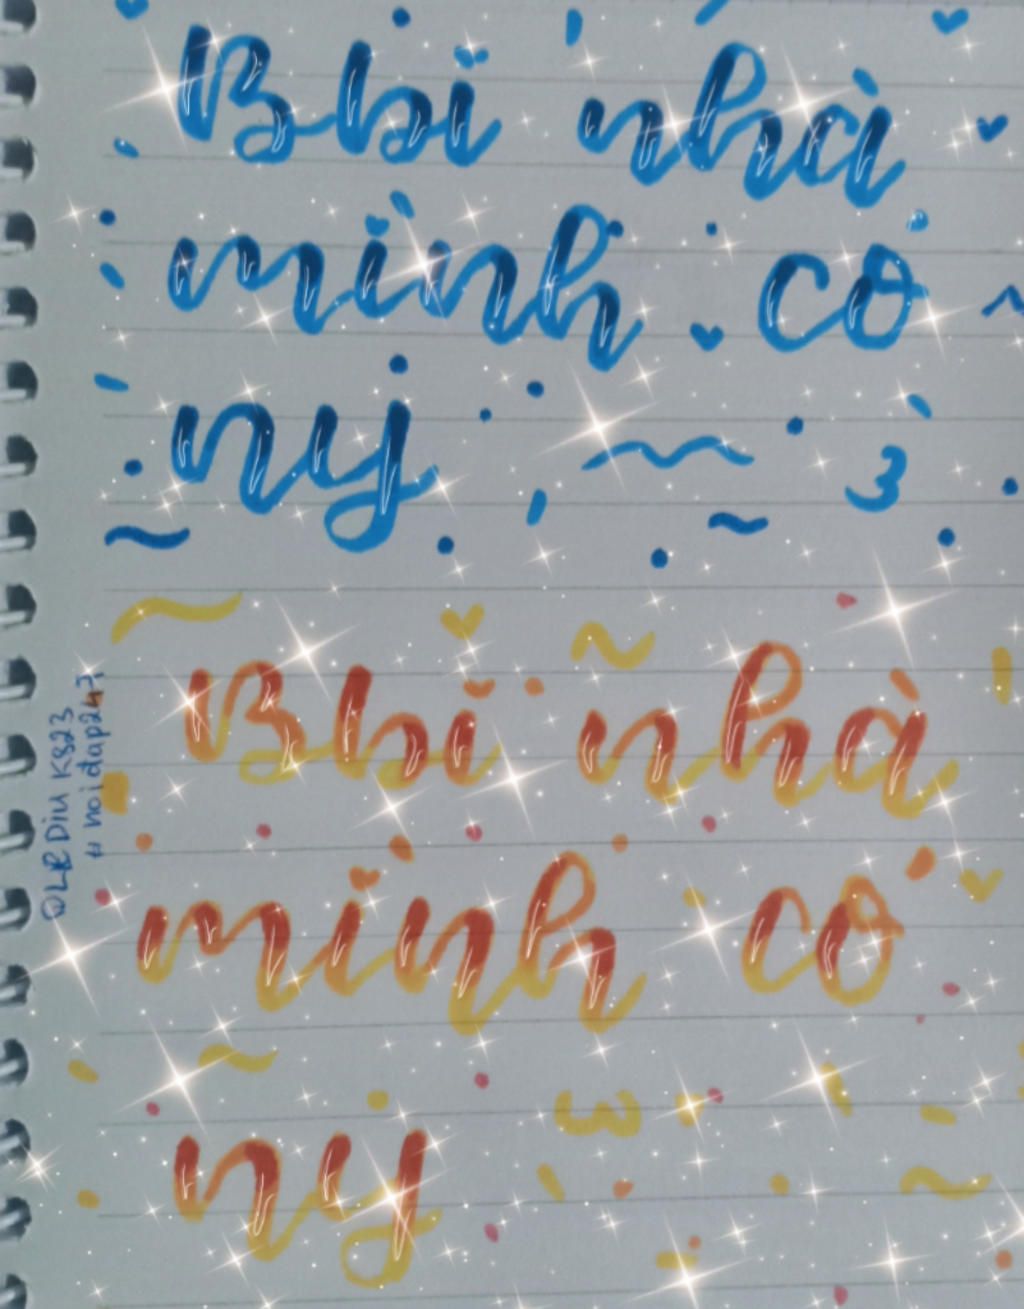 Bbi nhà
mình có
ny
Bbi nhà
mình có
ny
@LRDiu KS23
# hoidap247